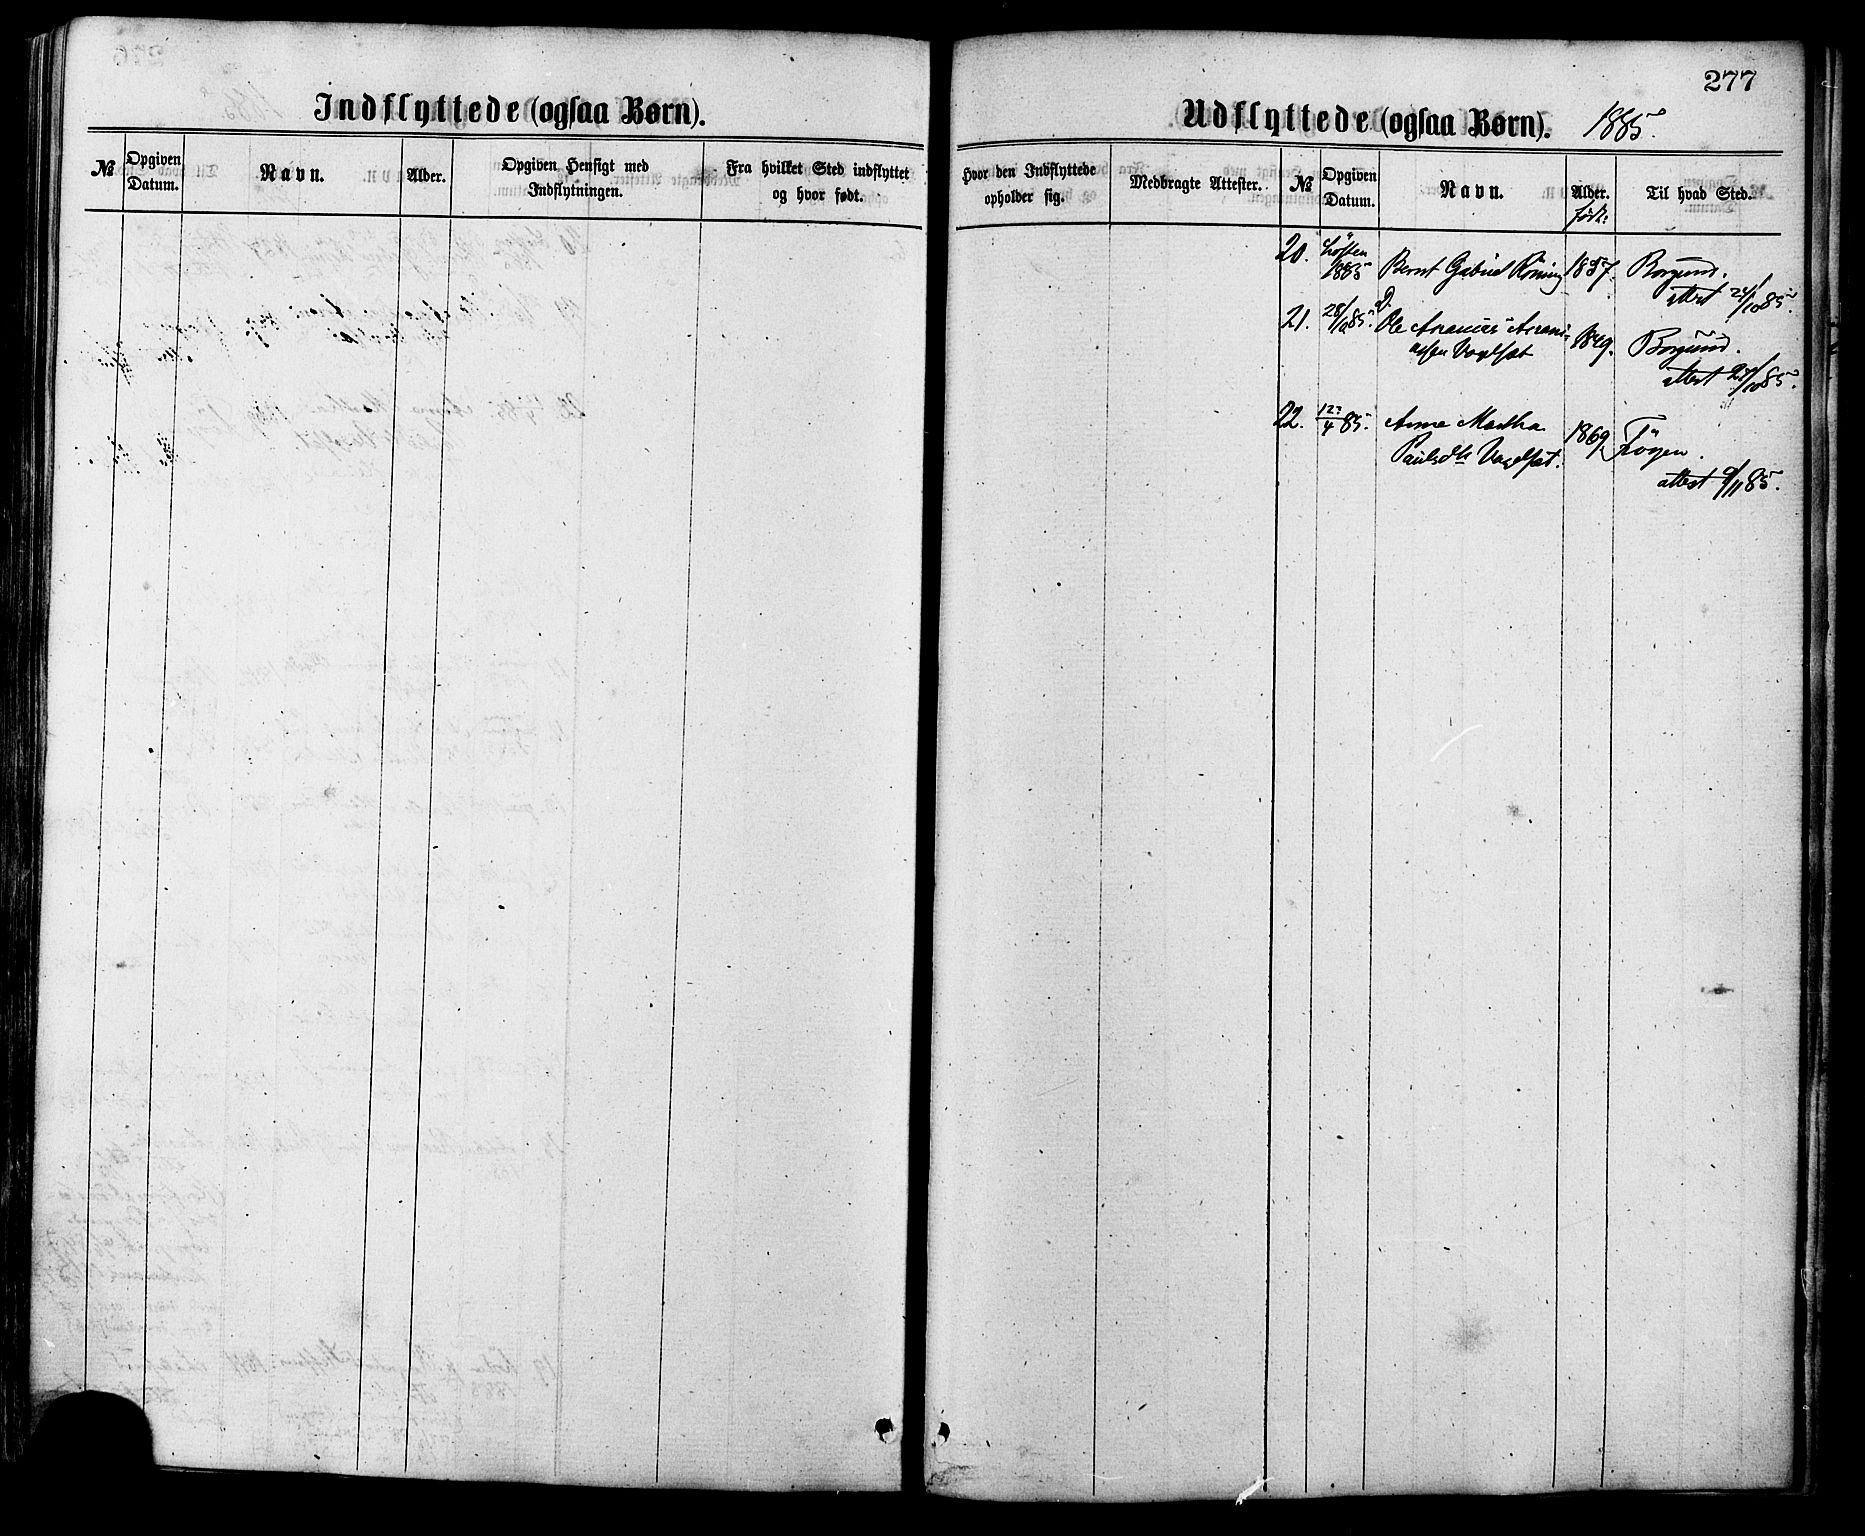 277
Indflyttede (ogsaa Børn).
№
Opgiven Datum.
Navn.
Alder.
Opgiven Hensigt med Indflytningen.
Fra hvilket Sted indflyttet og hvor født.
Udflyttede (ogsaa Børn). 1885.
Hvor den Indflyttede opholder sig.
Medbragte Attester.
№
Opgiven Datum.
Navn.
Alder.
født:
Til hvad Sted.
20. Høsten 1885 Bernt Gabriel 1857. Borgund.
attest 24/10 85.
21. 28/10 85. Ole 1849. Borgund.
attest 27/10 85.
22. 12/4 85. Anne Martha 1869
Paulsdtr Vagelsæt.
attest 9/11 85.